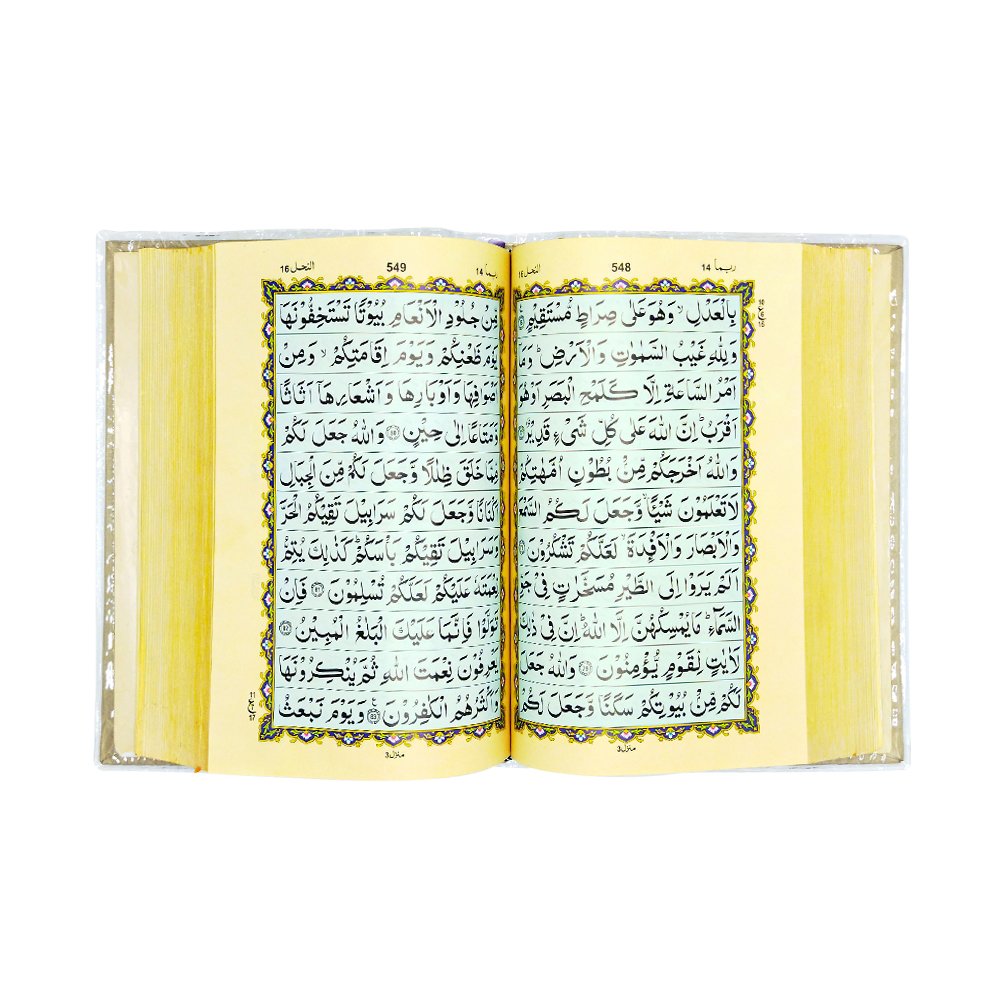 ربما 14 548 النحل 16
بِالْعَدْلِ ۙ وَهُوَ عَلٰى صِرَاطٍ مُّسْتَقِيْمٍ
وَلِلّٰهِ غَيْبُ السَّمٰوٰتِ وَالْاَرْضِ ؕ وَمَاۤ
اَمْرُ السَّاعَةِ اِلَّا كَلَمْحِ الْبَصَرِ اَوْ هُوَ
اَقْرَبُ ؕ اِنَّ اللّٰهَ عَلٰى كُلِّ شَىْءٍ قَدِيْرٌ
وَاللّٰهُ اَخْرَجَكُمْ مِّنْۢ بُطُوْنِ اُمَّهٰتِكُمْ
لَا تَعْلَمُوْنَ شَيْـًٔا ۙ وَّجَعَلَ لَكُمُ السَّمْعَ
وَالْاَبْصَارَ وَالْاَفْـِٕدَةَ ۙ لَعَلَّكُمْ تَشْكُرُوْنَ
اَلَمْ يَرَوْا اِلَى الطَّيْرِ مُسَخَّرٰتٍ فِىْ جَوِّ
السَّمَآءِ ؕ مَا يُمْسِكُهُنَّ اِلَّا اللّٰهُ ؕ اِنَّ فِىْ ذٰلِكَ
لَاٰيٰتٍ لِّقَوْمٍ يُّؤْمِنُوْنَ وَاللّٰهُ جَعَلَ
لَكُمْ مِّنْۢ بُيُوْتِكُمْ سَكَنًا وَّجَعَلَ لَكُمْ
منزل 3
ربما 14 549 النحل 16
مِّنْ جُلُوْدِ الْاَنْعَامِ بُيُوْتًا تَسْتَخِفُّوْنَهَا
يَوْمَ ظَعْنِكُمْ وَيَوْمَ اِقَامَتِكُمْ ۙ وَمِنْ
اَصْوَافِهَا وَاَوْبَارِهَا وَاَشْعَارِهَاۤ اَثَاثًا
وَّمَتَاعًا اِلٰى حِيْنٍ ۝80 وَاللّٰهُ جَعَلَ لَكُمْ
مِّمَّا خَلَقَ ظِلٰلًا وَّجَعَلَ لَكُمْ مِّنَ الْجِبَالِ
اَكْنَانًا وَّجَعَلَ لَكُمْ سَرَابِيْلَ تَقِيْكُمُ الْحَرَّ
وَسَرَابِيْلَ تَقِيْكُمْ بَاْسَكُمْ ؕ كَذٰلِكَ يُتِمُّ
نِعْمَتَهٗ عَلَيْكُمْ لَعَلَّكُمْ تُسْلِمُوْنَ ۝81 فَاِنْ
تَوَلَّوْا فَاِنَّمَا عَلَيْكَ الْبَلٰغُ الْمُبِيْنُ ۝82
يَعْرِفُوْنَ نِعْمَتَ اللّٰهِ ثُمَّ يُنْكِرُوْنَهَا
وَاَكْثَرُهُمُ الْكٰفِرُوْنَ ۝83 وَيَوْمَ نَبْعَثُ
منزل 3